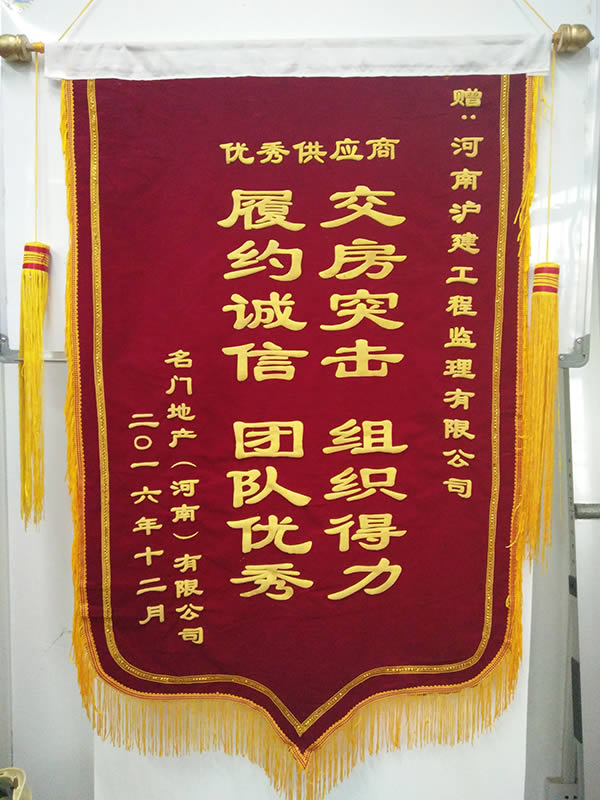 赠：河南沪建工程监理有限公司
优秀供应商
交房突击 组织得力
履约诚信 团队优秀
名门地产（河南）有限公司
二〇一六年十二月